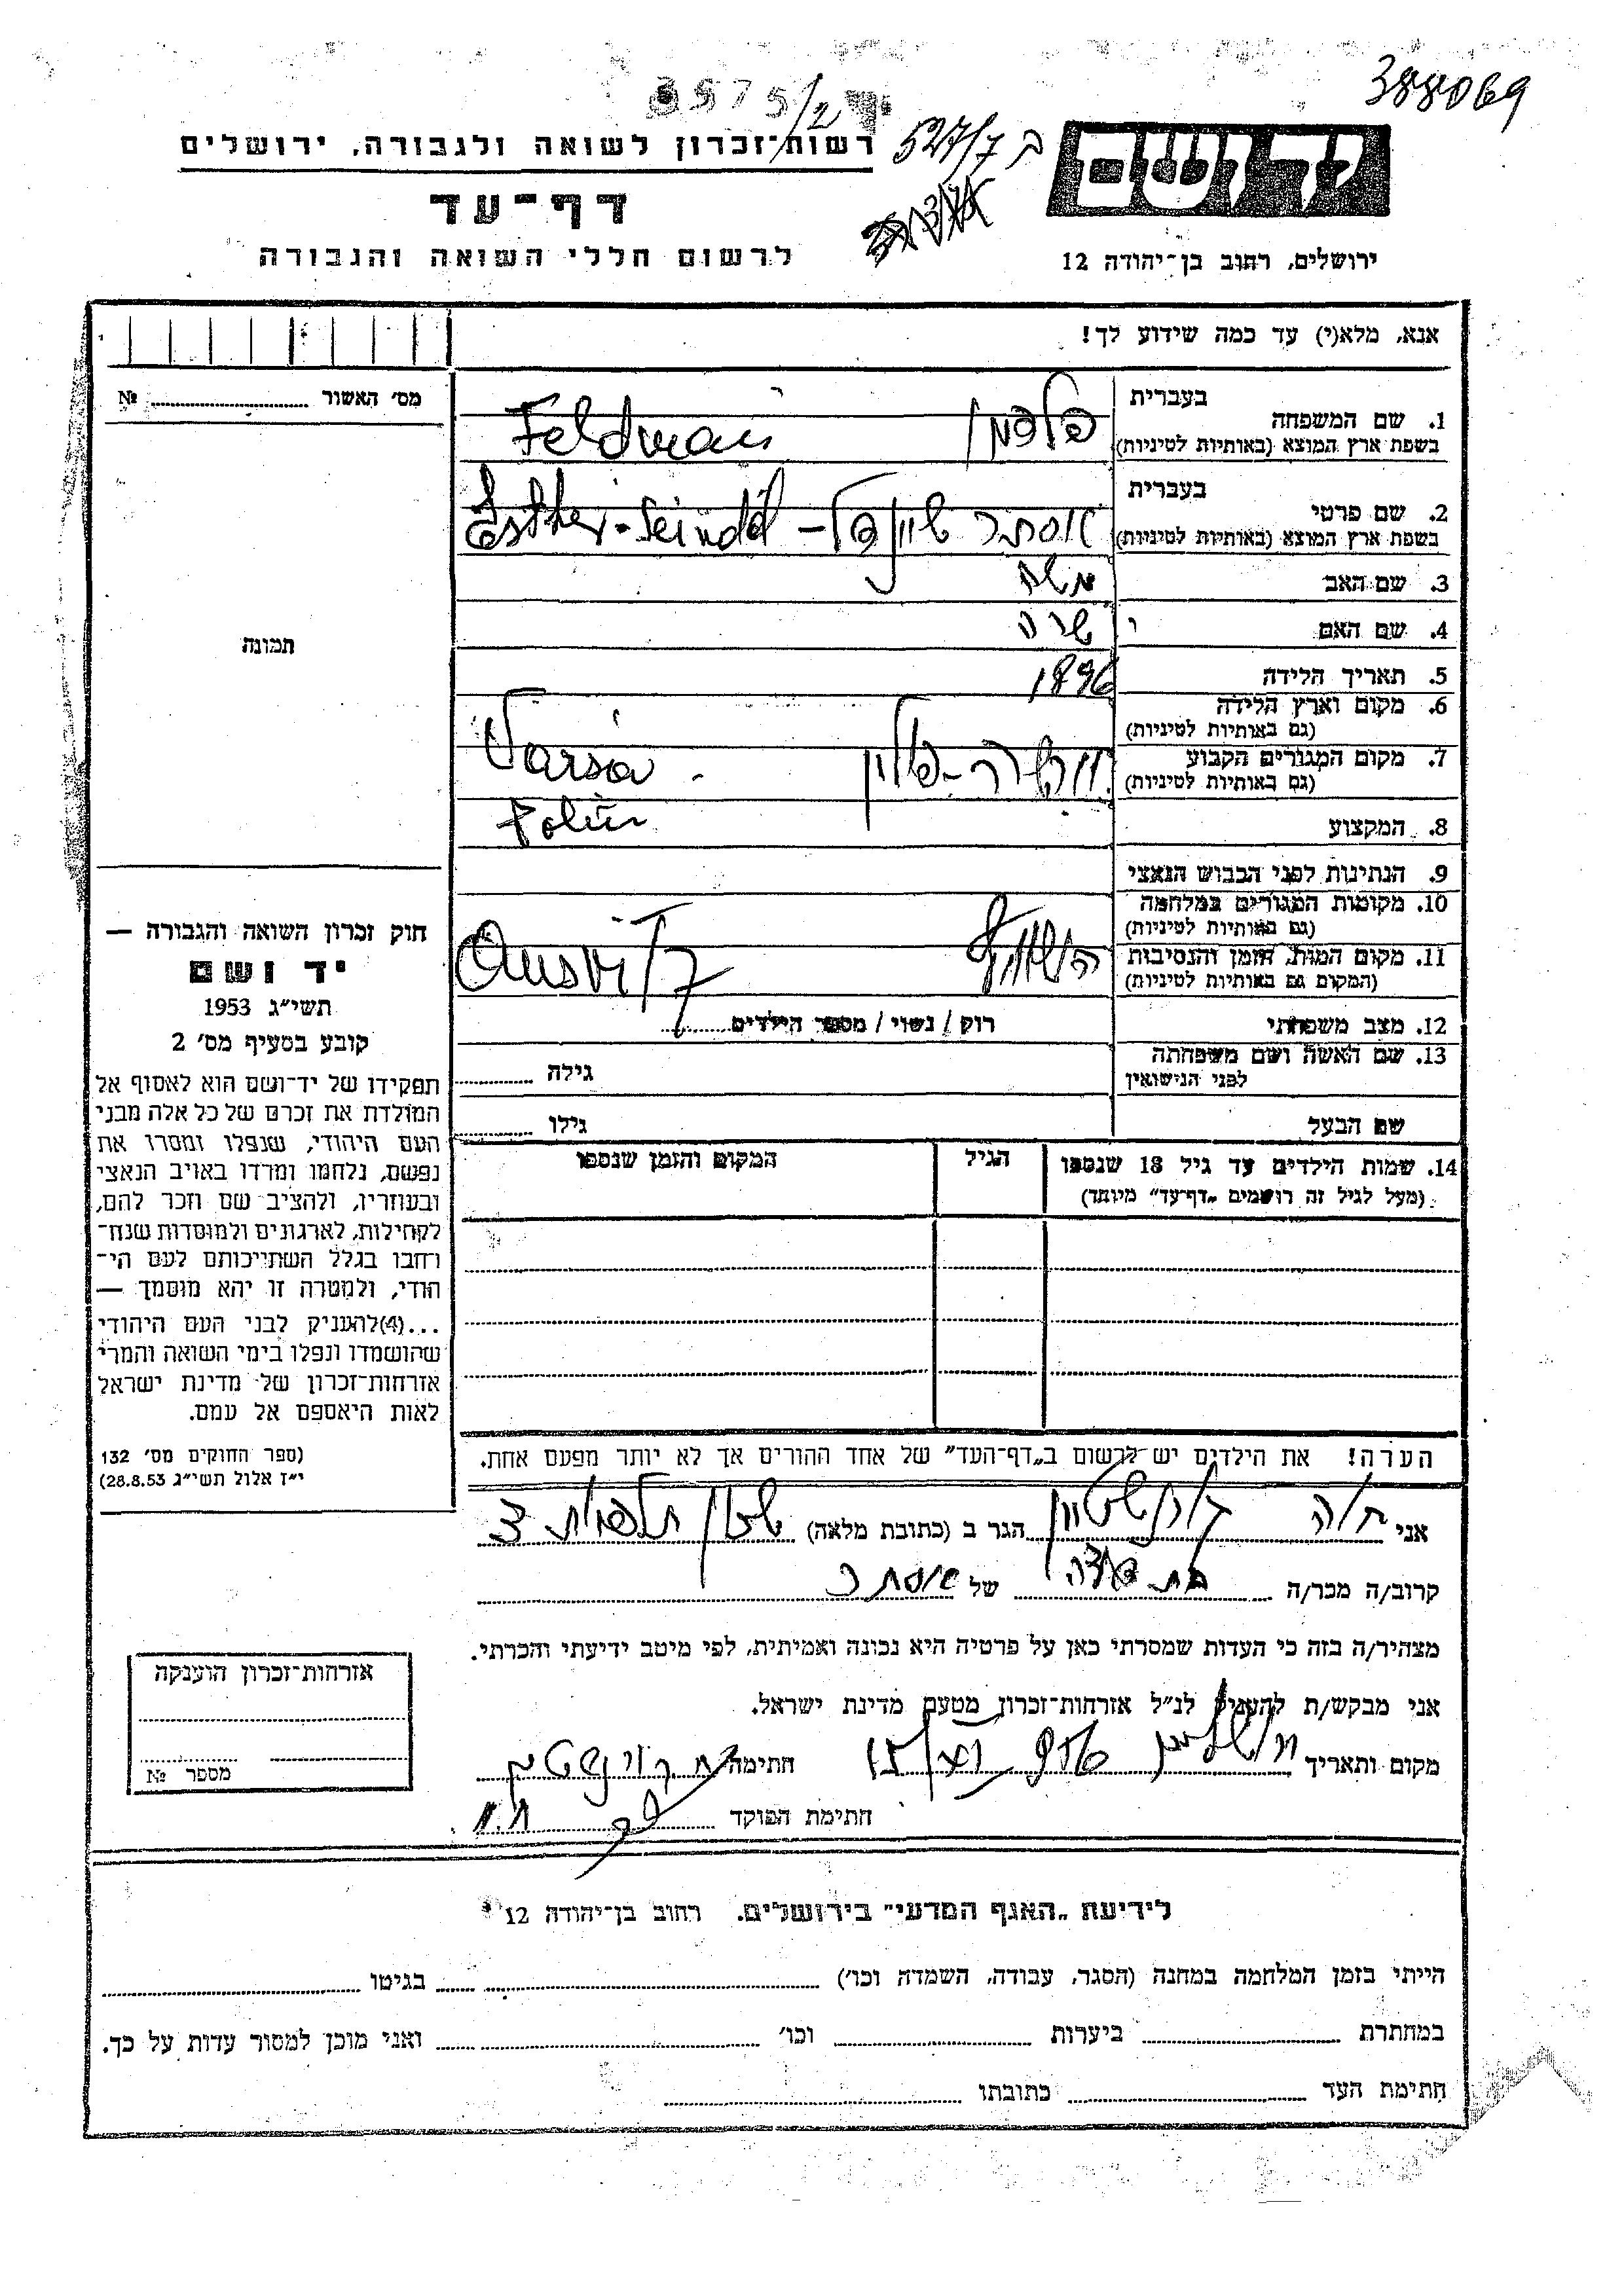 388069
3575/2
527/7 ב
רשות־זכרון לשואה ולגבורה, ירושלים
יד ושם
דף־עד
לרשום חללי השואה והגבורה
ירושלים, רחוב בן־יהודה 12
אנא, מלא(י) עד כמה שידוע לך!
מס׳ האשור .......... №
בעברית
1. שם המשפחה
בשפת ארץ המוצא (באותיות לטיניות)
פלדמן Feldman
בעברית
2. שם פרטי
בשפת ארץ המוצא (באותיות לטיניות)
אסתר שיינדל – Esther-Seindel
3. שם האב משה
4. שם האם שרה
5. תאריך הלידה 1896
6. מקום וארץ הלידה
(גם באותיות לטיניות)
7. מקום המגורים הקבוע
(גם באותיות לטיניות)
ורשה-פולין Varsa
Polin
8. המקצוע
9. הנתינות לפני הכבוש הנאצי
10. מקומות המגורים במלחמה
(גם באותיות לטיניות)
11. מקום המות, הזמן והנסיבות
(המקום גם באותיות לטיניות)
Ausvitz
12. מצב משפחתי רוק / נשוי / מספר הילדים ..........
13. שם האשה ושם משפחתה
לפני הנישואין
גילה ..........
שם הבעל גילו ..........
14. שמות הילדים עד גיל 18 שנספו
(מעל לגיל זה רושמים „דף־עד” מיוחד)
הגיל
המקום והזמן שנספו
הערה! את הילדים יש לרשום ב„דף־העד” של אחד ההורים אך לא יותר מפעם אחת.
תמונה
חוק זכרון השואה והגבורה —
יד ושם
תשי״ג 1953
קובע בסעיף מס׳ 2
תפקידו של יד־ושם הוא לאסוף אל
המולדת את זכרם של כל אלה מבני
העם היהודי, שנפלו ומסרו את
נפשם, נלחמו ומרדו באויב הנאצי
ובעוזריו, ולהציב שם וזכר להם,
לקהילות, לארגונים ולמוסדות שנח־
רחבו בגלל השתייכותם לעם הי־
הודי, ולמטרה זו יהא מוסמך —
...(4)להעניק לבני העם היהודי
שהושמדו ונפלו בימי השואה והמרי
אזרחות־זכרון של מדינת ישראל
לאות היאספם אל עמם.
(ספר החוקים מס׳ 132
י״ז אלול תשי״ג 28.8.53)
אני חיה הגר ב (כתובת מלאה)
קרוב/ה מכר/ה בת דודה של אסתר
מצהיר/ה בזה כי העדות שמסרתי כאן על פרטיה היא נכונה ואמיתית, לפי מיטב ידיעתי והכרתי.
אני מבקש/ת להעניק לנ״ל אזרחות־זכרון מטעם מדינת ישראל.
מקום ותאריך ירושלים חתימה
חתימת הפוקד
אזרחות־זכרון הוענקה
מספר №
לידיעת „האגף המדעי” בירושלים, רחוב בן־יהודה 12
הייתי בזמן המלחמה במחנה (הסגר, עבודה, השמדה וכו׳) .......... בגיטו ..........
במחתרת .......... ביערות .......... וכו׳ .......... ואני מוכן למסור עדות על כך.
חתימת העד .......... כתובתו ..........